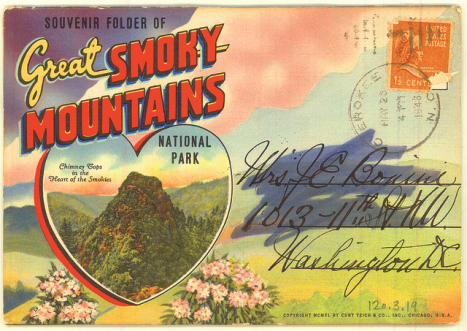 SOUVENIR FOLDER OF
Great SMOKY
MOUNTAINS
NATIONAL
PARK
Chimney Tops
in the
Heart of the Smokies
UNITED
STATES
POSTAGE
1½ CENTS
CHEROKEE
4 PM
N.C.
Mrs J E
1013-11th St NW
Washington D.C.
120.3.19
COPYRIGHT MCMXL BY CURT TEICH & CO., INC., CHICAGO, U.S.A.